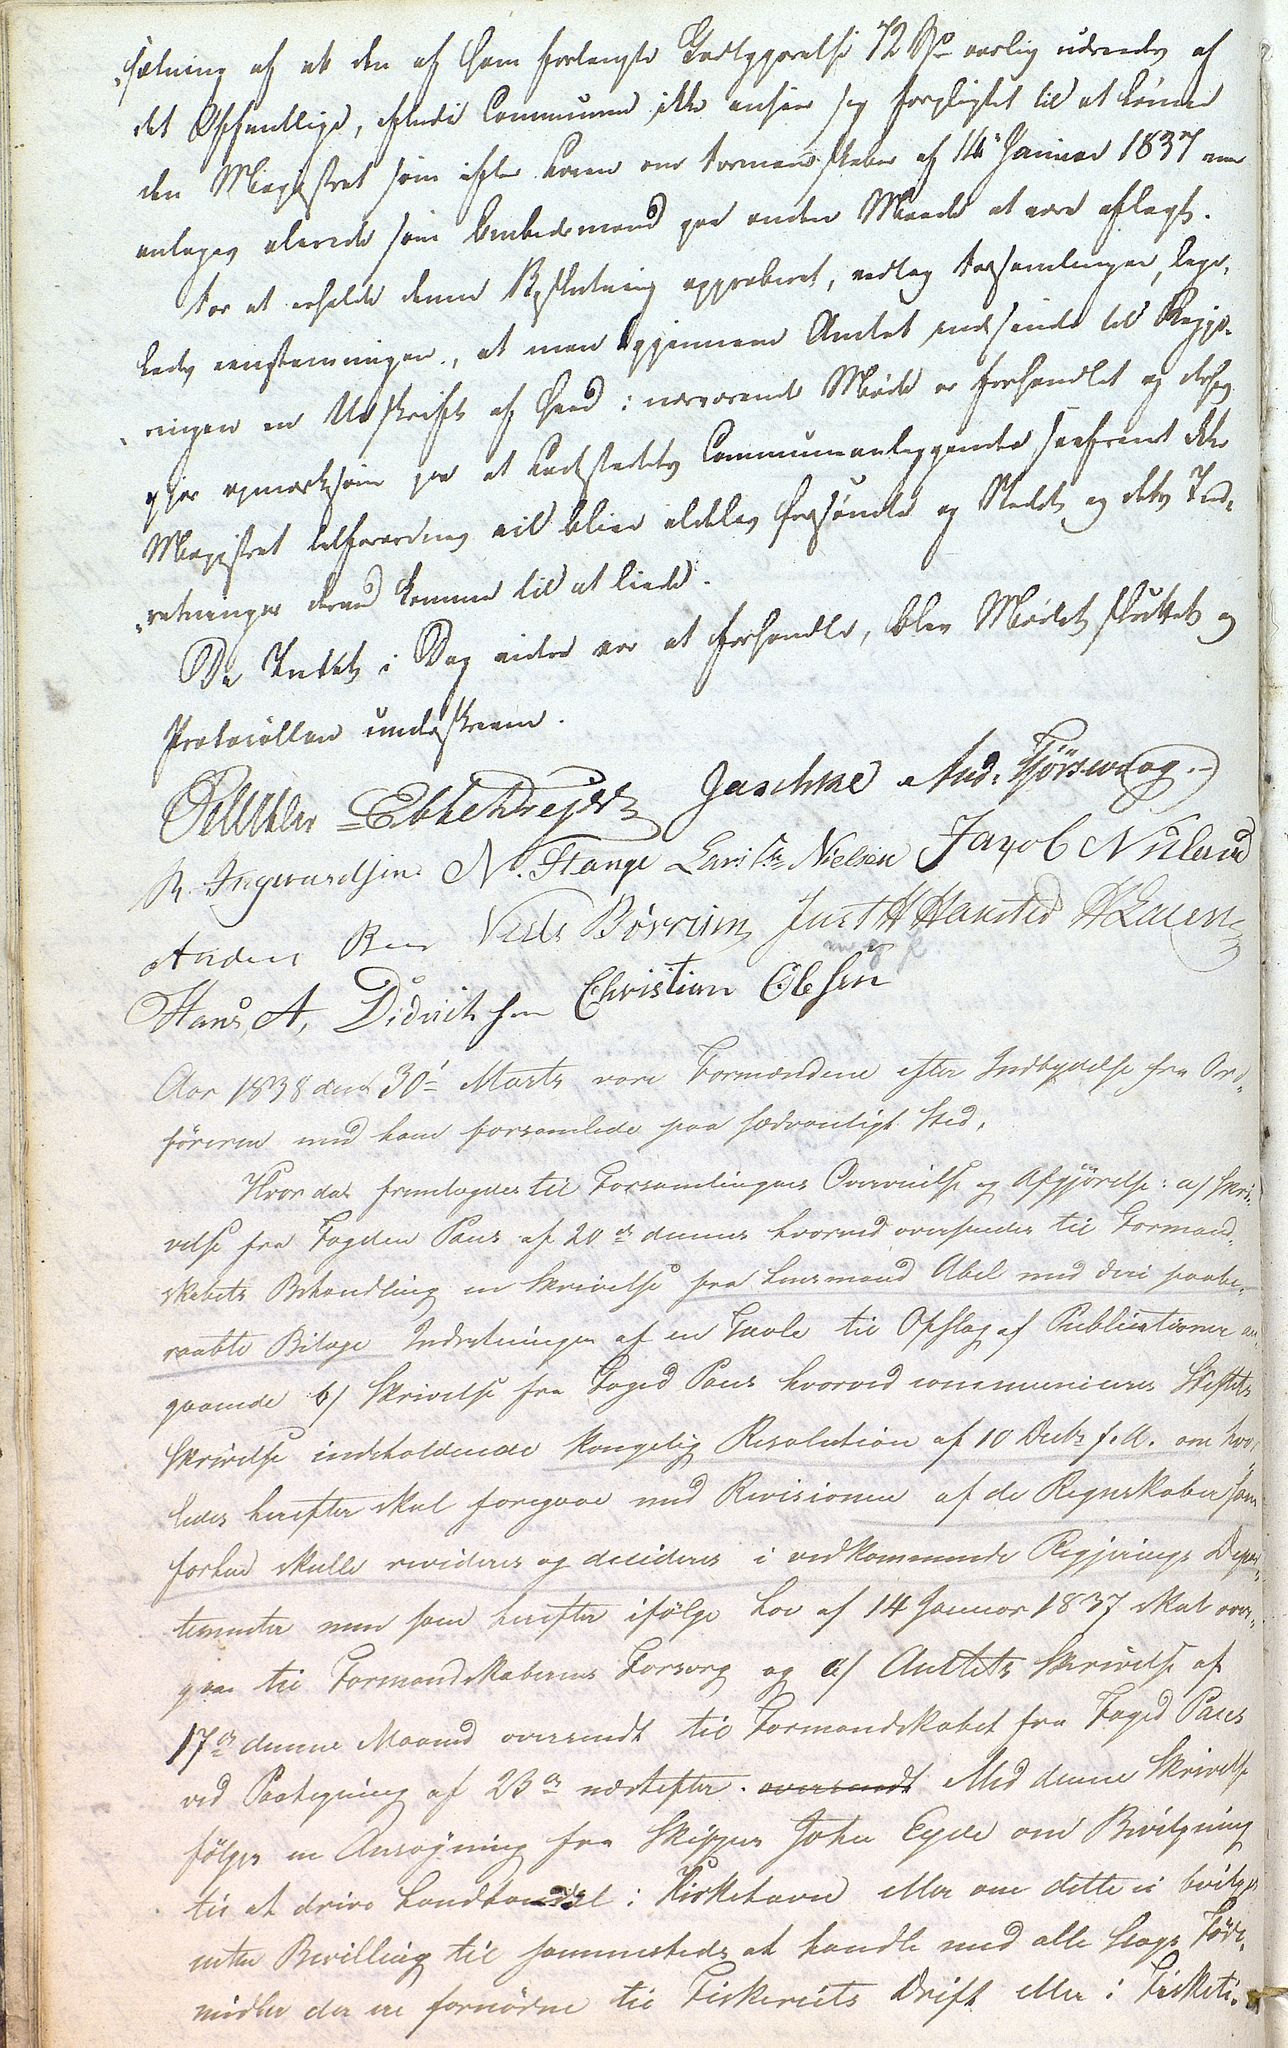 sætning af at den af ham forlangte Godtgjørelse 72 Spd aarlig udredes af
det Offentlige, efterdi Communen ikke anseer sig forpligtet til at lønne
den Magistrat som efter Loven om Formandskaber af 14de Januar 1837 maa
antages allerede som Embedsmand paa anden Maade at være aflagt.
For at erholde denne Beslutning approberet, vedtog Forsamlingen, lige¬
ledes eenstemmigen, at man igjennem Amtet indsende til Regje¬
ringen en Udskrift af hvad i nærværende Møde er forhandlet og derhos
gjør opmærksom paa at Ladestedets Communeanliggender saafremt ikke
Magistrat beskikkes vil blive aldeles forsømte og Stedet og dets Ind¬
retninger derved komme til at liide.
Da Intet i Dag videre var at forhandle, blev Mødet sluttet og
Protocollen underskreven.
Ebbe Dreyer Jaschke And. Fjørsvaag
R. Ingwardsen N. Stange Lars Chr Nielsen Jacob Nuland
Anders Niels Børrum Just H Hansted
Hans A. Didriksen Christian Olsen
Aar 1838 den 30te Marts vare Formændene efter Indbydelse fra Ord¬
føreren med ham forsamlede paa sædvanligt Sted,
Hvor da fremlagdes til Forsamlingens Overveielse og Afgjørelse: a/ Skri¬
velse fra Fogden Paus af 20de dennes hvorved oversendes til Formand¬
skabets Behandling en Skrivelse fra Lensmand Abel med deri paabe¬
raabte Bilage Indretningen af en Tavle til Opslag af Publicationer an¬
gaaende b/ Skrivelse fra Foged Paus hvorved communiceres Stiftets
Skrivelse indeholdende kongelig Resolution af 10 Decbr f. A. om hvor¬
ledes herefter skal foregaae med Revisionen af de Regnskaber som
forhen skulle revideres og decideres i vedkommende Regjerings Depar¬
tementer men som herefter ifølge Lov af 14 Januar 1837 skal over¬
gaae til Formandskabernes Forsorg og c/ Amtets Skrivelse af
17de denne Maaned oversendt til Formandskabet fra Foged Paus
ved Paategning af 23de næstefter. oversendt Med denne Skrivelse
følger en Ansøgning fra Skipper John Eyde om Bevilgning
til at drive Landhandel i Kirkehavn eller om dette ei bevilges
Bevilling til sammesteds at handle med alle Slags Føde¬
midler der ere fornødne til Fiskeriets Drift eller i Fisketi¬